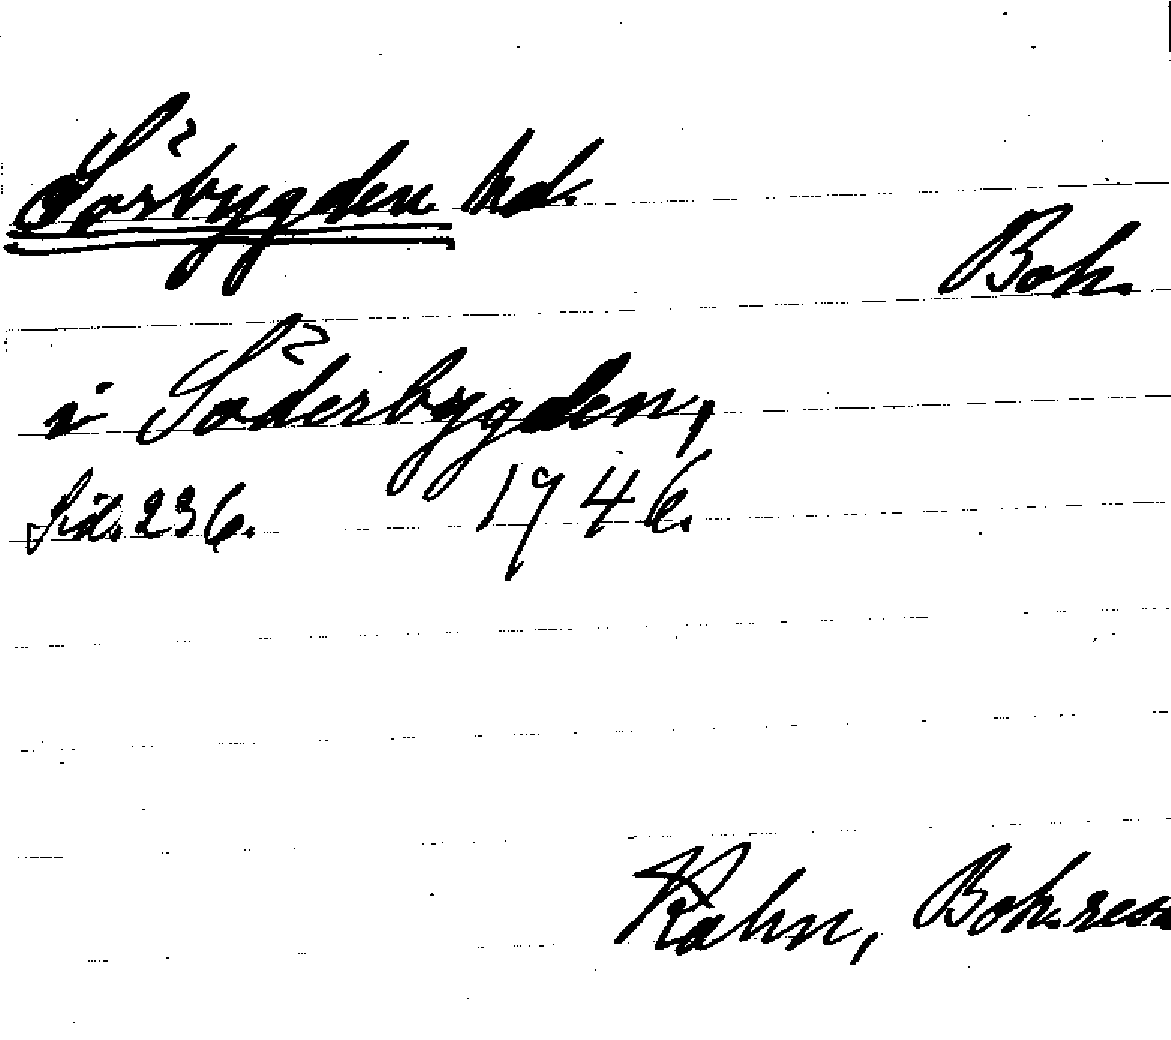 Sörbygden hd.
Boh.
i Söderbygden,
Sid. 236. 1746.
Kalm, Boh. resa